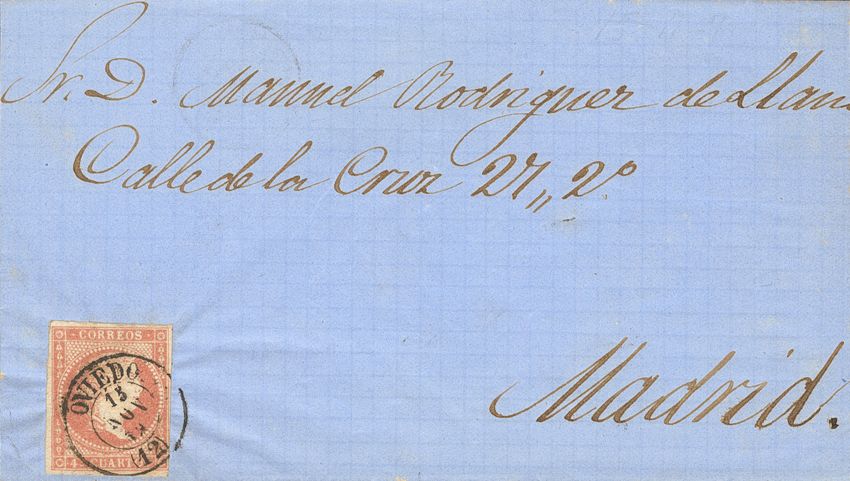 Sr. D. Manuel Rodriguez de Llano
Calle de la Cruz 27,, 2º
Madrid.
CORREOS
OVIEDO
15
NOV
(12)
4 CUARTOS